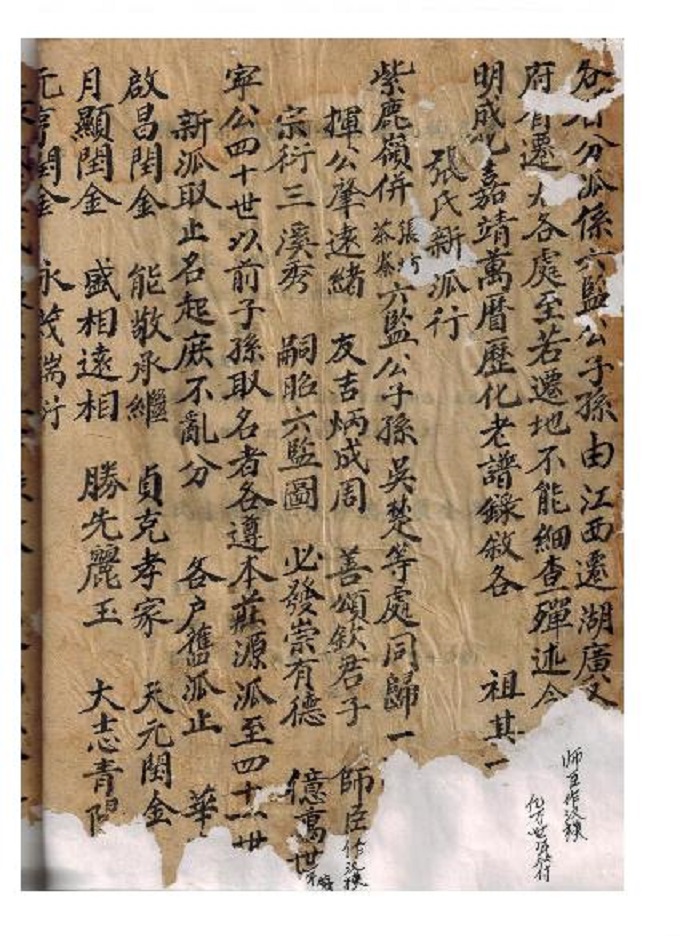 各省分派係六監公子孫由江西遷湖廣又
府省遷大各處至若遷地不能細查殫述今
明成化嘉靖萬曆歷化老譜錄敘各 祖其一
張氏新派行
紫鹿嶺併張坊茶崙六監公子孫吳楚等處同歸一
揮公肇遠緒 友吉炳成周 善頌欽君子 師臣作
宗衍三溪秀 嗣昭六監圖 必發崇有德 億萬世
寧公四十世以前子孫取名者各遵本莊源派至四十一世
新派取止名起庶不亂分 各户舊派止 華
啟昌閏金 能敬承繼 貞克孝家 天元閏金
月顯閏金 盛相遠相 勝先麗玉 大志青陽
元亨閏金 永茂瑞行
师臣作汝楫
亿万世